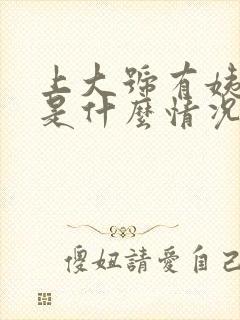 上大號有姨
是什麼情況
傻妞請愛自己